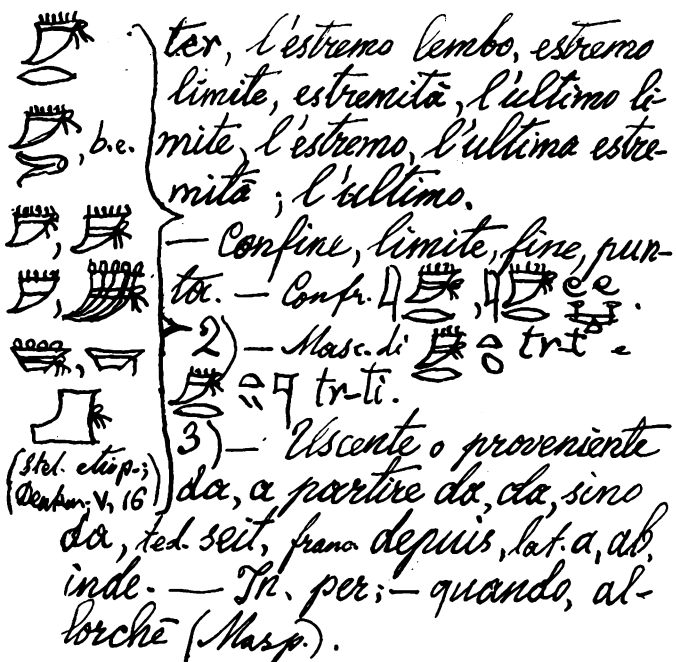 ter, l'estremo lembo, estremo
limite, estremità, l'ultimo li-
b.e. mite, l'estremo, l'ultima estre-
mità; l'ultimo.
— Confine, limite, fine, pun-
ta. — Confr. , .
2) — Masc. di tr-t e
tr-ti.
3) — Uscente o proveniente
(Stel. etiop.;
Denkm. V, 16) da, a partire da, da, sino
da, ted. seit, franc. depuis, lat. a, ab,
inde. — In, per; — quando, al-
lorchè (Masp.).